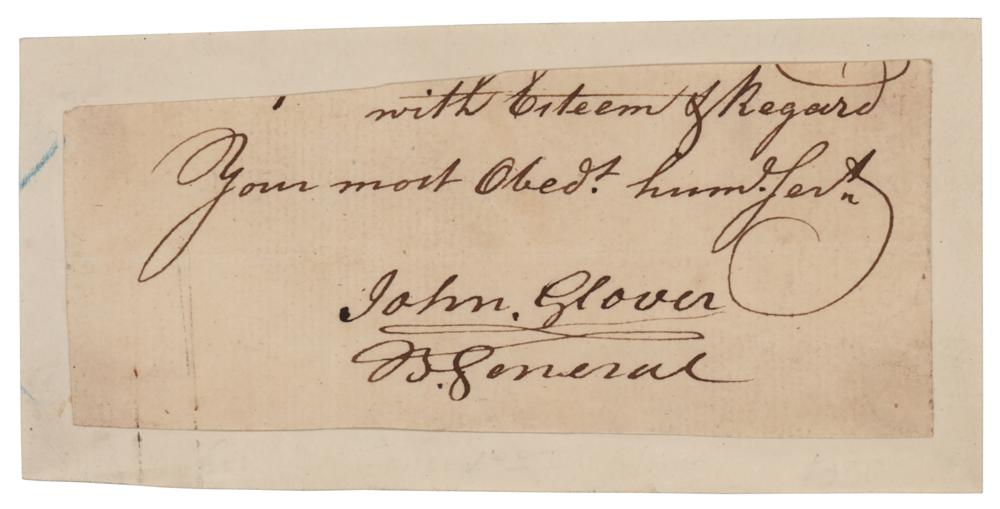 with Esteem & Regard
Your most Obedt. humd. Servt
John. Glover
B. General